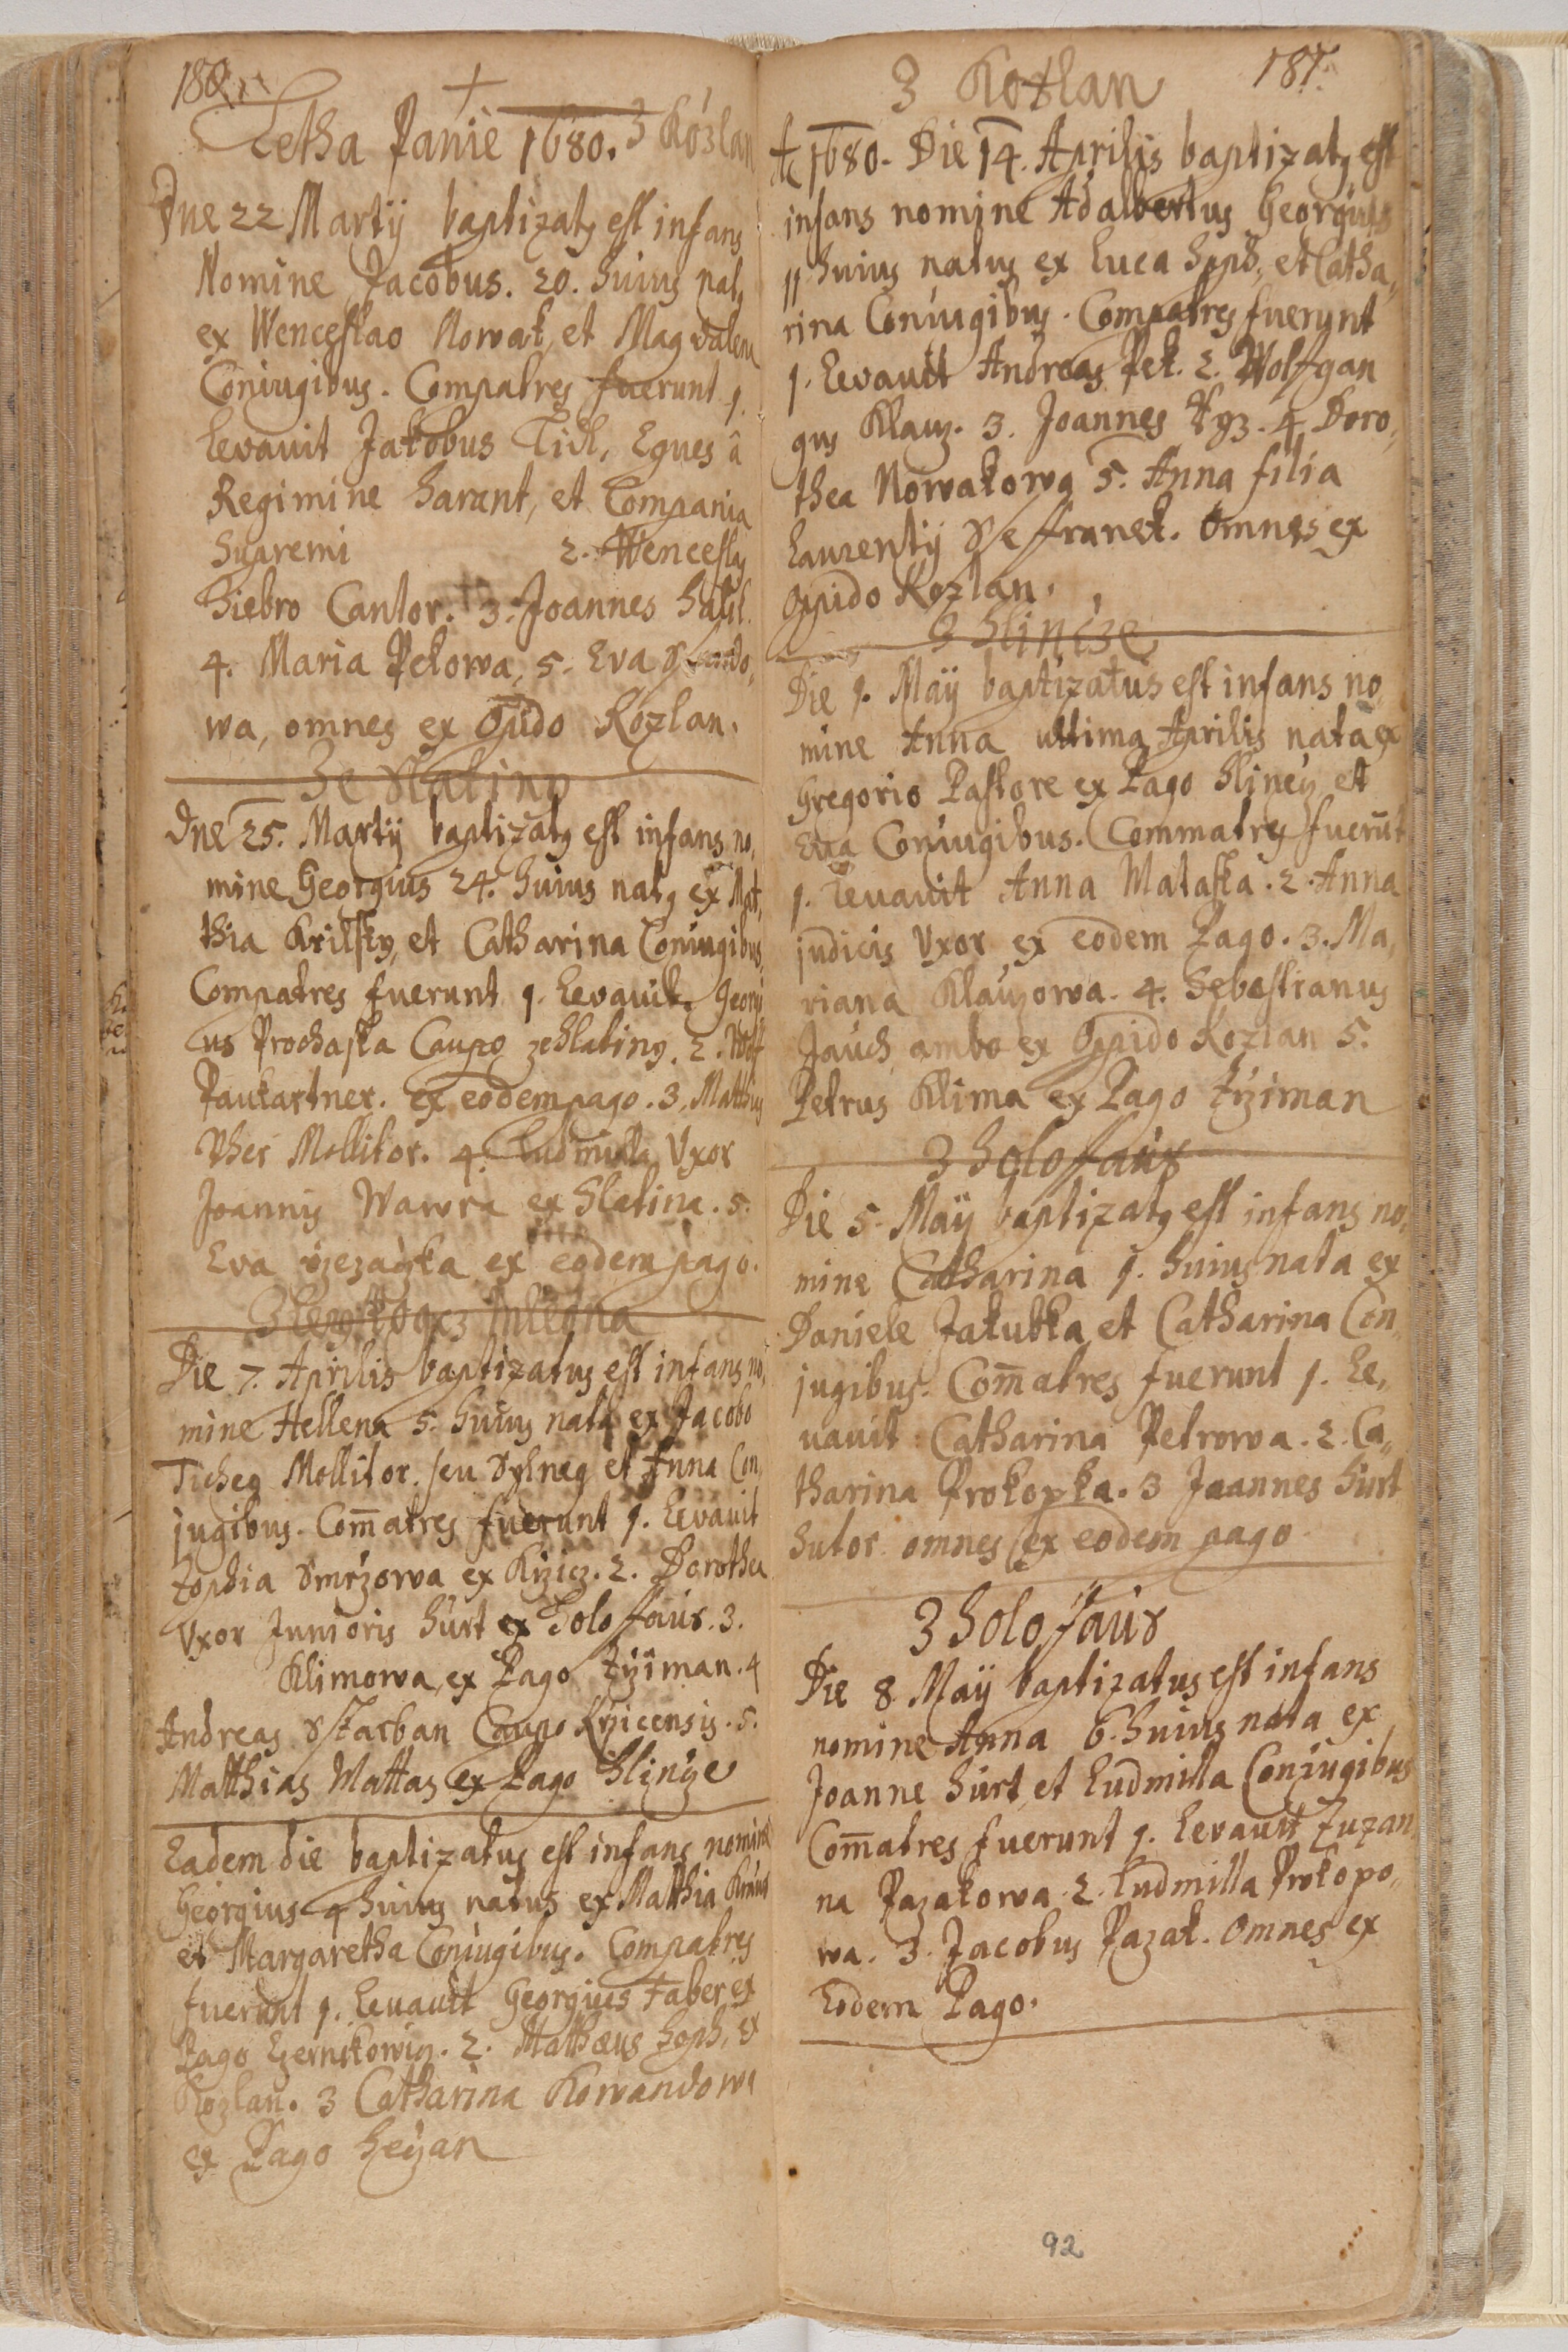 180
Letha Panie 1680. Z Kózlan
Dne 22 Martij baptizatq est infans
Nomine Jacobus. 20. huius natq
ex Wenceslao Nowak, et Magdalena
Coniugibus. Compatres fuerunt 1.
Levavit Jakobus Tich, Eques à
Regimine harant, et Compania
Supremi 2. Wencesly
hiebro Cantor. 3. Joannes
4. Maria Pekowa, 5. Eva
wa, omnes ex Opido Kozlan.
Ze Slatiny
Dne 25. Martij baptizatq est infans no,
mine Georgius 24. huius natq ex Mat,
thia Krilsky, et Catharina Coniugibus,
Compatres fuerunt 1. Levavit. Georgi
us Prochaska Caupo zeslatiny. 2. Wolf
Paukartner. ex eodem pago. 3. Matthiq
Vher Mollitor. 4. Ludmilla Vxor
Joannis Wawra ex Slatina. 5.
Eva ex eodem pago.
Mlegna
Die 7. Aprilis baptizatus est infans no,
mine Hellena 5. huius nata ex Jacobo
Ticheg Mollitor. seu et Anna Con
jugibus. Com̄atres fuerunt 1. Levavit
Zophia Smržowa ex Krzicz. 2. Dorothea
Vxor Junioris húrt ex holoffaus. 3.
Klimowa, ex Pago Zyiman. 4
Andreas Sskarban Caupo Krzicensis. 5.
Matthias Mattas ex Pago Slincze
Eadem die baptizatus est infans nomine
Georgius 4 huius natus ex Matthia
et Margaretha Coniugibus. Compatres
fuerunt 1. Levauit Georgius Faber ex
Pago Czernikowicz. 2. Mathæus Soph, ex
Kozlan. 3 Catharina Kowandowa
ex Pago heyan
Z Kozlan 181.
Aº 1680. Die 14. Aprilis baptizatq est
infans nomine Adalbertus Georgius
11 huius natus ex Luca Soph, et Catha,
rina Coniugibus. Compatres fuerunt
1. Levauit Andreas Pek. 2. Wolffgan
gus Klauz. 3. Joannes 4 Doro,
thea Nowakowa 5. Anna filia
Laurentij Sseffranek. Omnes ex
Opido Kozlan.
Z Slincze
Die 1. Maÿ baptizatus est infans no,
mine Anna ultima Aprilis nata ex
Gregorio Pastore ex Pago Slincz et
Eua Coniugibus. Commatres fuerūt
1. Leuauit Anna Mataska. 2. Anna
judicis Vxor ex eodem Pago. 3. Ma,
riana Klauzowa. 4. Sebastianus
Jauch, ambo ex Oppido Kozlan 5.
Petrus Klima ex Pago Zyiman
Z holoffaus
Die 5. Maÿ baptizatq est infans no,
mine Catharina 1. huius nata ex
Daniele Jakubka et Catharina Con,
jugibus. Com̄atres fuerunt 1. Le,
uauit Catharina Petrowa. 2. Ca,
tharina Prokopka. 3 Joannes húrt
Sutor omnes ex eodem pago
Z holoffaus
Die 8 Maÿ baptizatus est infans
nomine Anna 6. huius nata ex
Joanne húrt et Ludmilla Coniugibus
Com̄atres fuerunt 1. Levauit Zuzan
na Pazakowa 2. Ludmilla Prokopo,
wa. 3. Jacobus Pazak. Omnes ex
Eodem Pago.
92